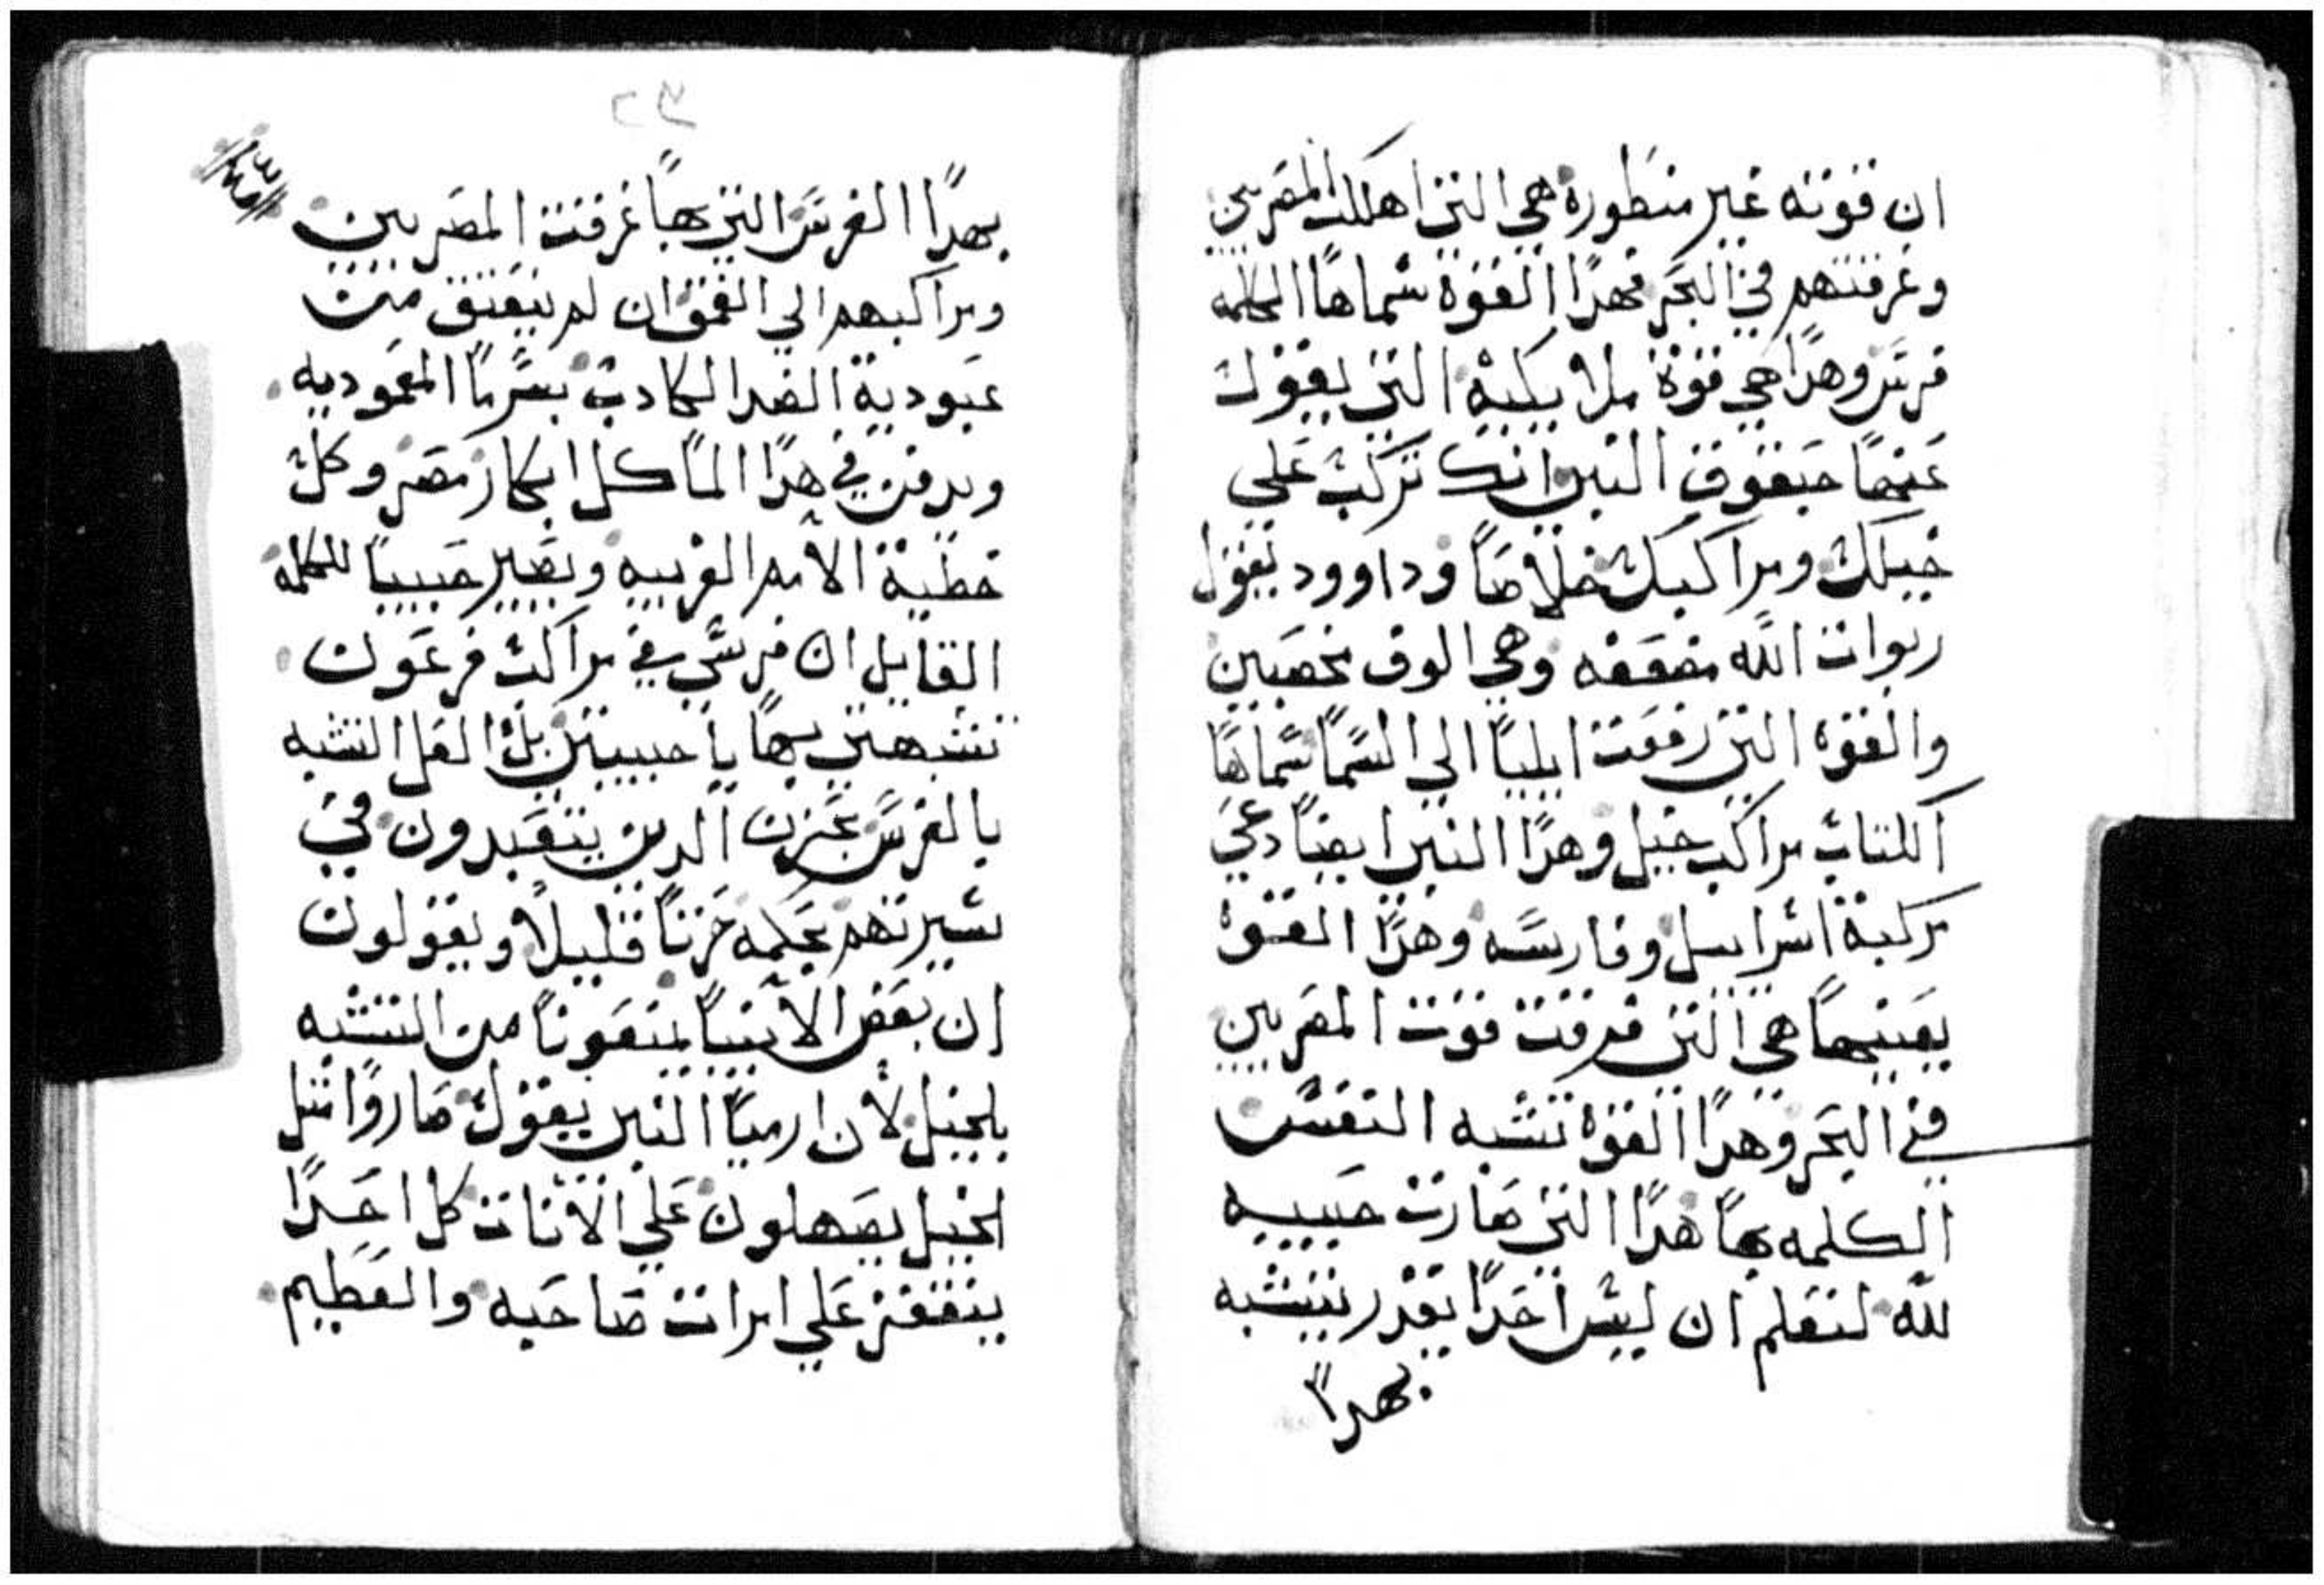 ان قوته غير منطوره هي التي اهلكت المصريين
وغرقتهم في البحر فهدا القوة سماها الكلمه
فرس وهدا هي قوة ملايكيه التي يقول
عنها حبقوق النبي انك تركب على
خيلك ومراكبك خلاصا وداوود يقول
ربوات الله مضعفه وهي الوف مخصبين
والقوه التي رفعت ايليا الي السما سماها
الكتاب مراكب خيل وهدا النبي ايضا دعي
مركبة اسراييل وفارسه وهدا القوه
بعينها هي التي غرقت قوت المصريين
في البحر وهدا القوه تشبه النفس
الكلمه بها هدا التي صارت حبيبه
لله لنعلم ان ليس احدا يقدر يتشبه
بهدا
٢٣
بهدا الفرس التي بها غرقت المصريين
ومراكبهم الي العمق ان لم ينعتق من
عبودية الضد الكادب بسر ما المعموديه
ويدفن في هدا الما كل ابكار مصر وكل
خطية الامم الغريبه ويصير حبيبا للكلمه
القايل ان فرسي في مراكب فرعون
تشبهتي بها يا حبيبتي بل العل التشبه
بالفرس يحزن الدين يتعبدون في
سيرتهم بحكمه حزنا قليلا ويقولون
ان بعض الانبيا يمنعونا من التشبه
بالخيل لان ارميا النبي يقول صاروا مثل
الخيل يصهلون علي الاناث كل احدا
يتقفز علي امرات صاحبه والعظيم